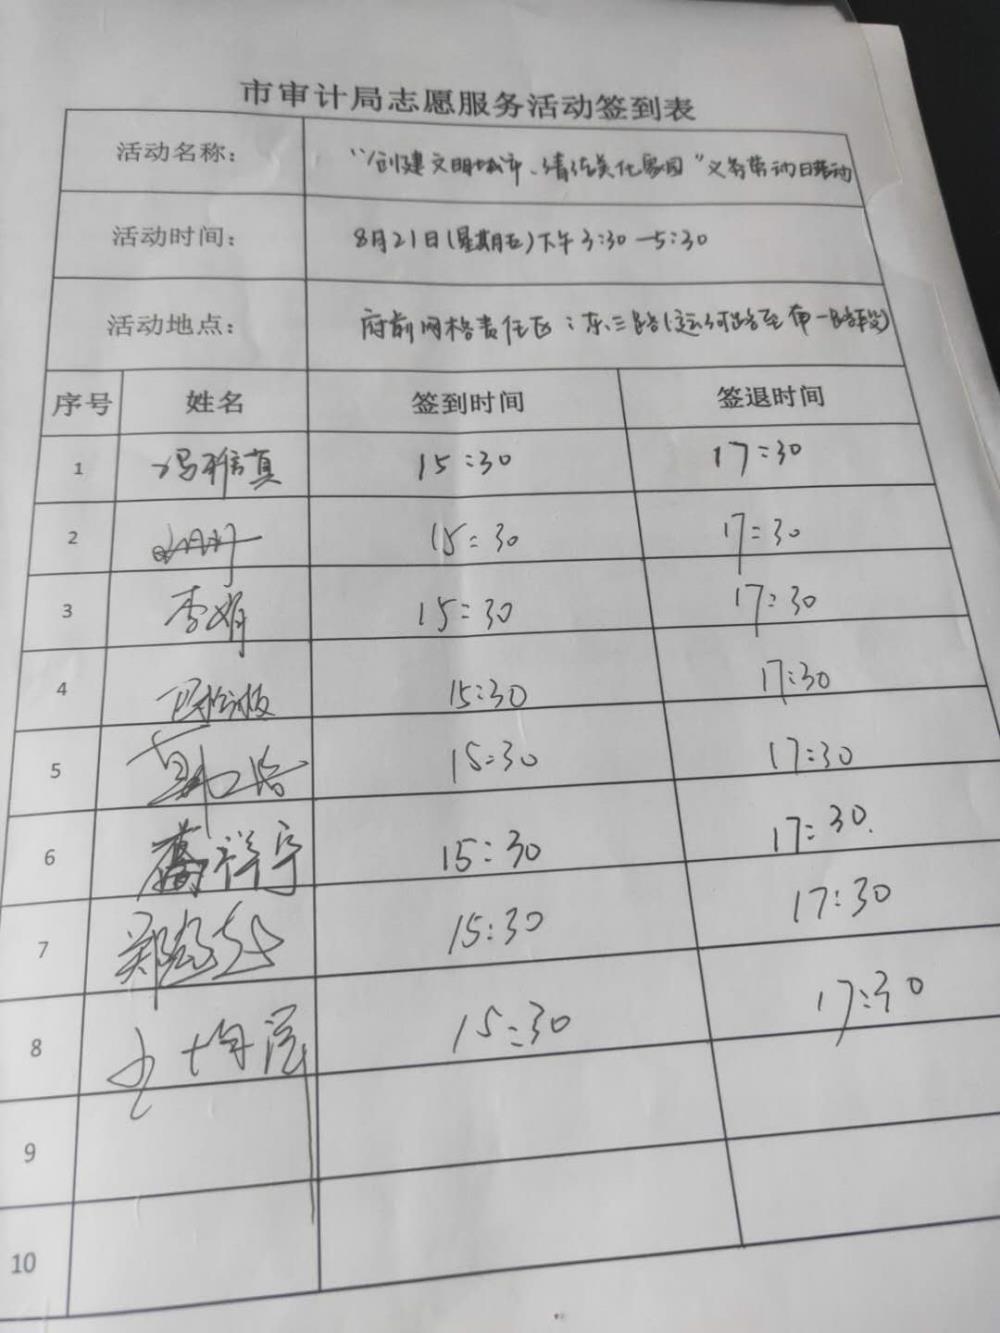 市审计局志愿服务活动签到表
活动名称： “创建文明城市、清洁美化家园”义务劳动日活动
活动时间： 8月21日(星期五)下午3:30-5:30
活动地点： 府前网格责任区：东三路(运河路至南一路段)
序号 姓名 签到时间 签退时间
1 冯雅真 15:30 17:30
2 15:30 17:30
3 李娟 15:30 17:30
4 15:30 17:30
5 15:30 17:30
6 祥宇 15:30 17:30.
7 郑 15:30 17:30
8 15:30 17:30
9
10